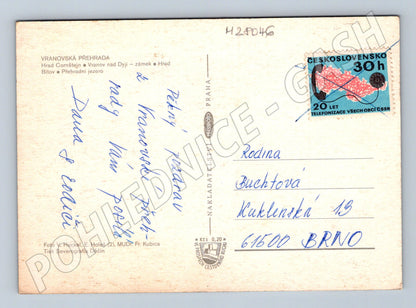 H28046
VRANOVSKÁ PŘEHRADA
Hrad Cornštejn • Vranov nad Dyjí – zámek • Hrad
Bítov • Přehradní jezero
ČESKOSLOVENSKO
30h
20 LET
TELEFONIZACE VŠECH OBCÍ ČSSR
Pěkný pozdrav
z Vranovské přeh-
rady Vám posílá
Dana s rodiči
NAKLADATELSTVÍ
PRAHA
Rodina
Buchtová
Kuklenská 13
61500 BRNO
Kčs 0,20
Foto V. Hyhlík, E. Holeš (2), MUDr. Fr. Kubica
Tisk Severografia Děčín
POHLEDNICE - CASH